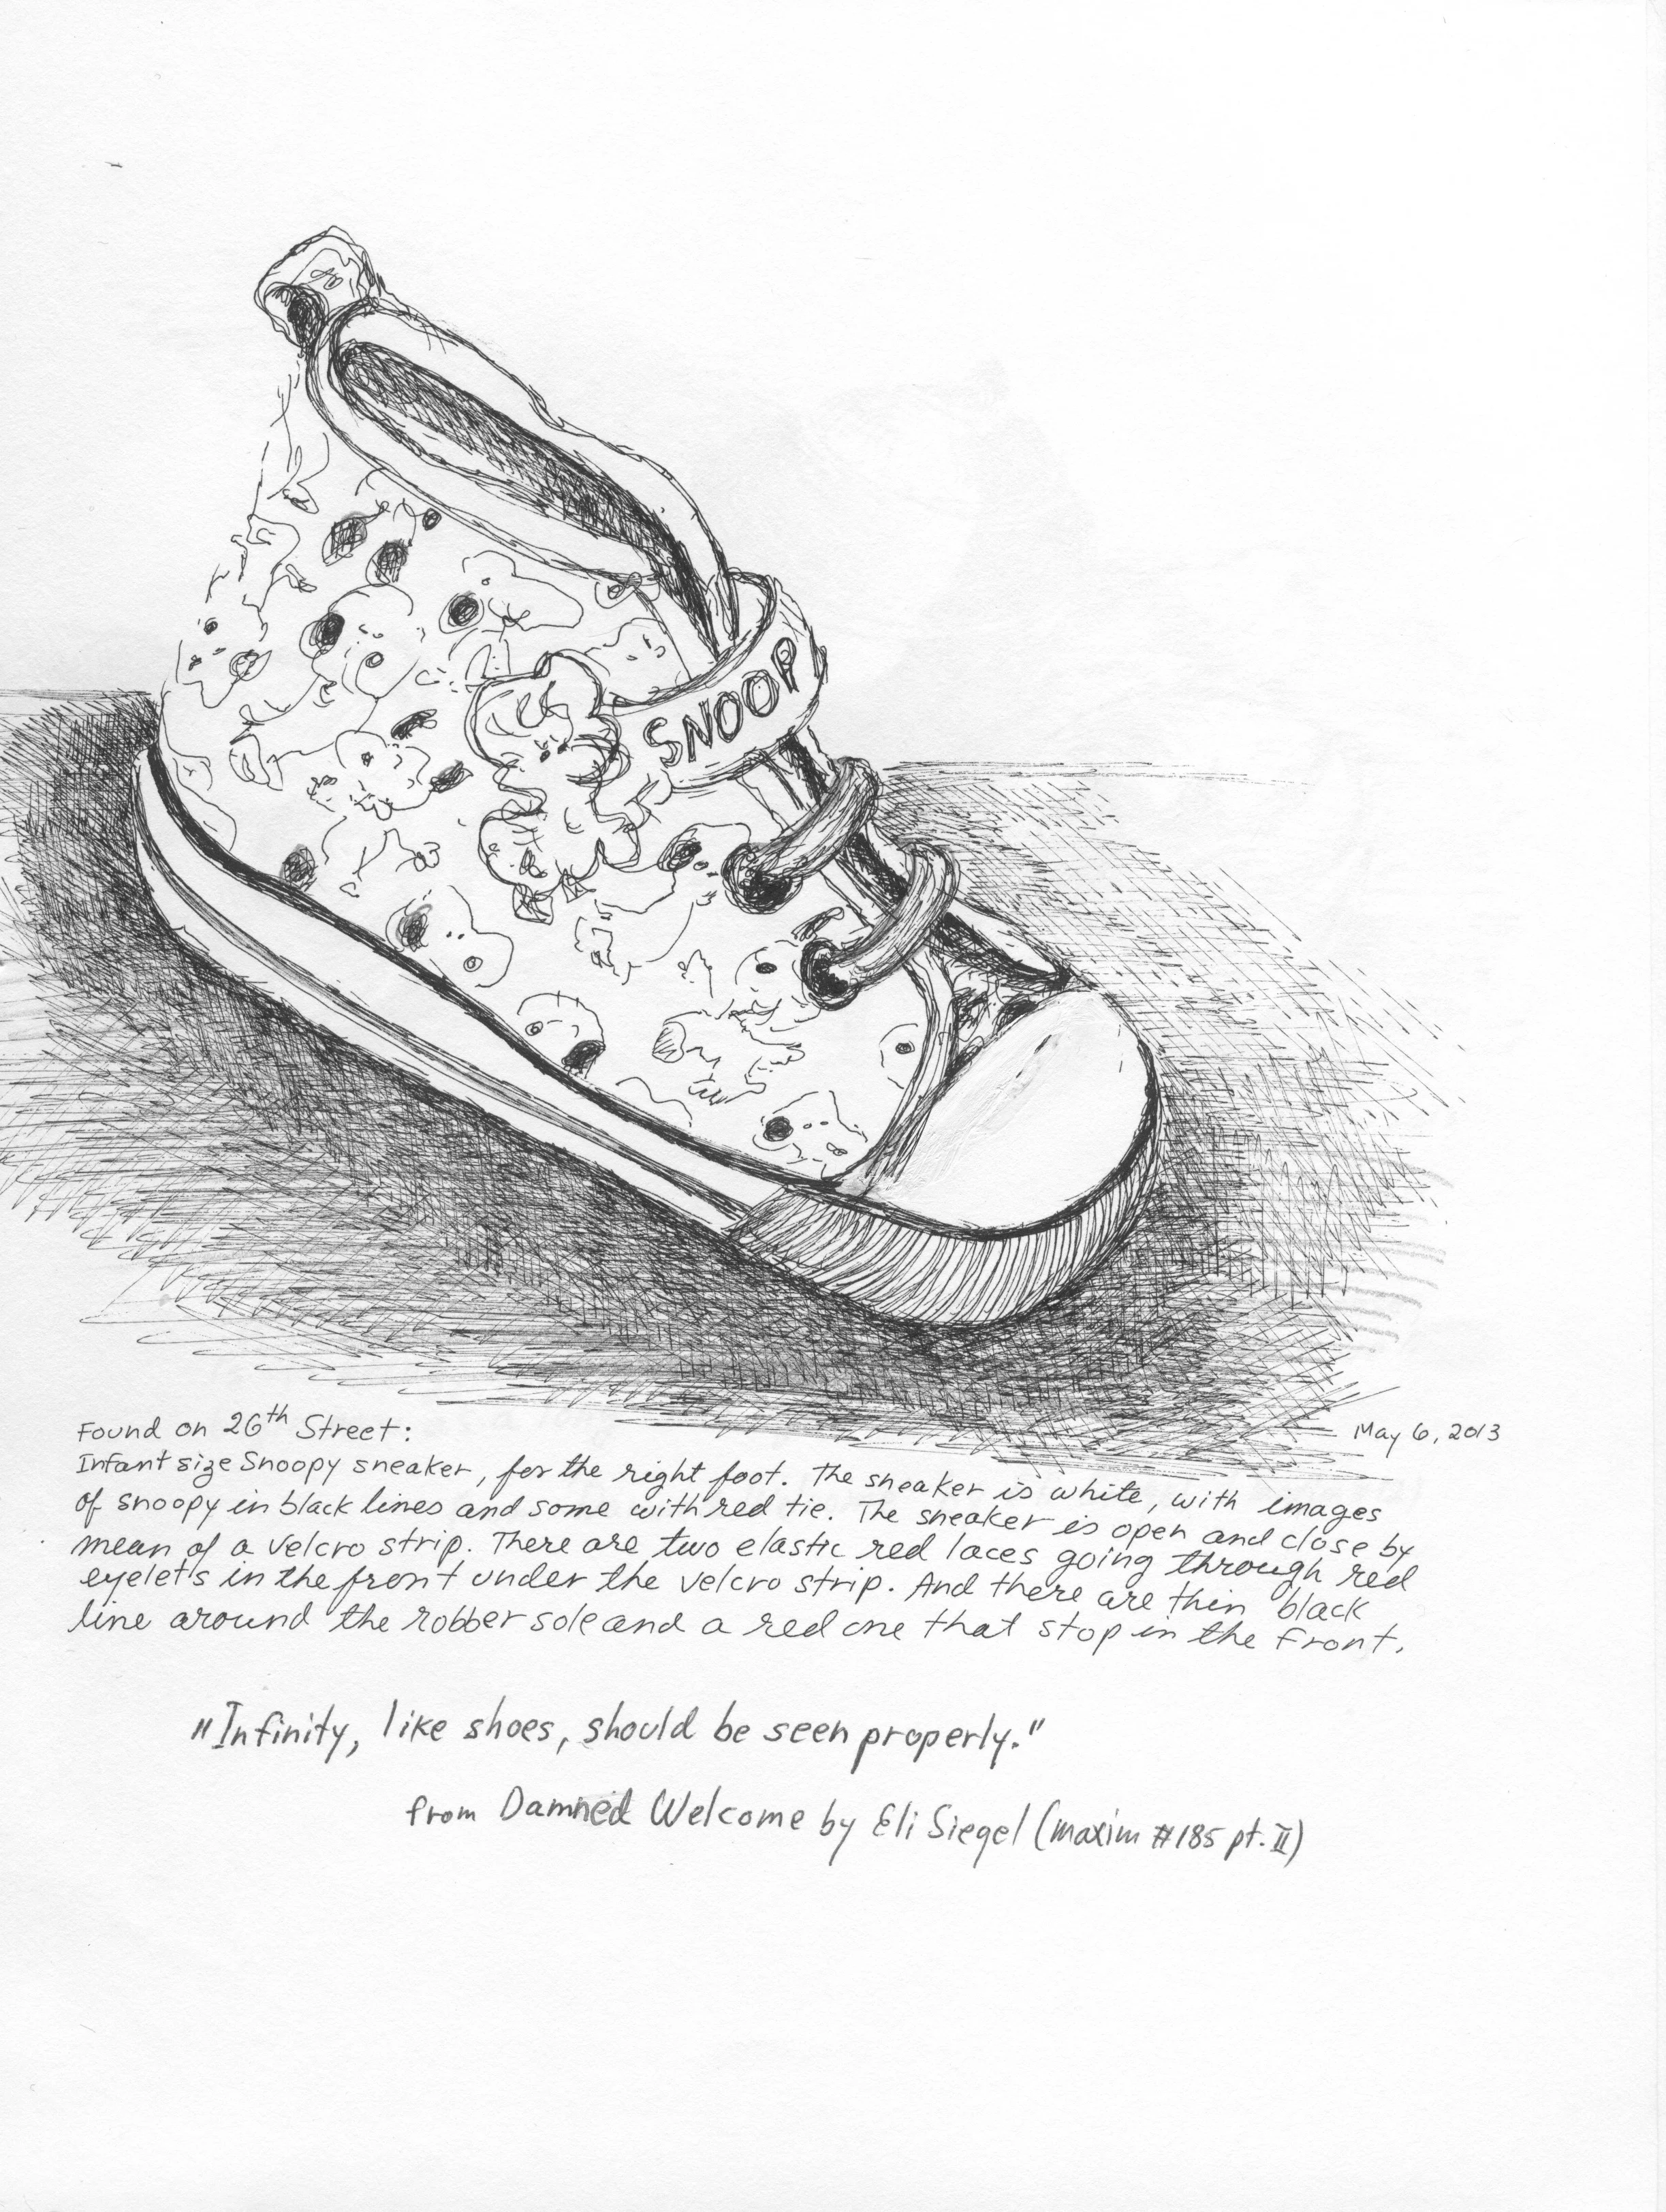 SNOOP
Found on 26th Street:
May 6, 2013
Infant size Snoopy sneaker, for the right foot. The sneaker is white, with images
of snoopy in black lines and some with red tie. The sneaker is open and close by
mean of a velcro strip. There are two elastic red laces going through red
eyelets in the front under the velcro strip. And there are thin black
line around the robber sole and a red one that stop in the front.
"Infinity, like shoes, should be seen properly."
from Damned Welcome by Eli Siegel (maxim #185 pt. II)